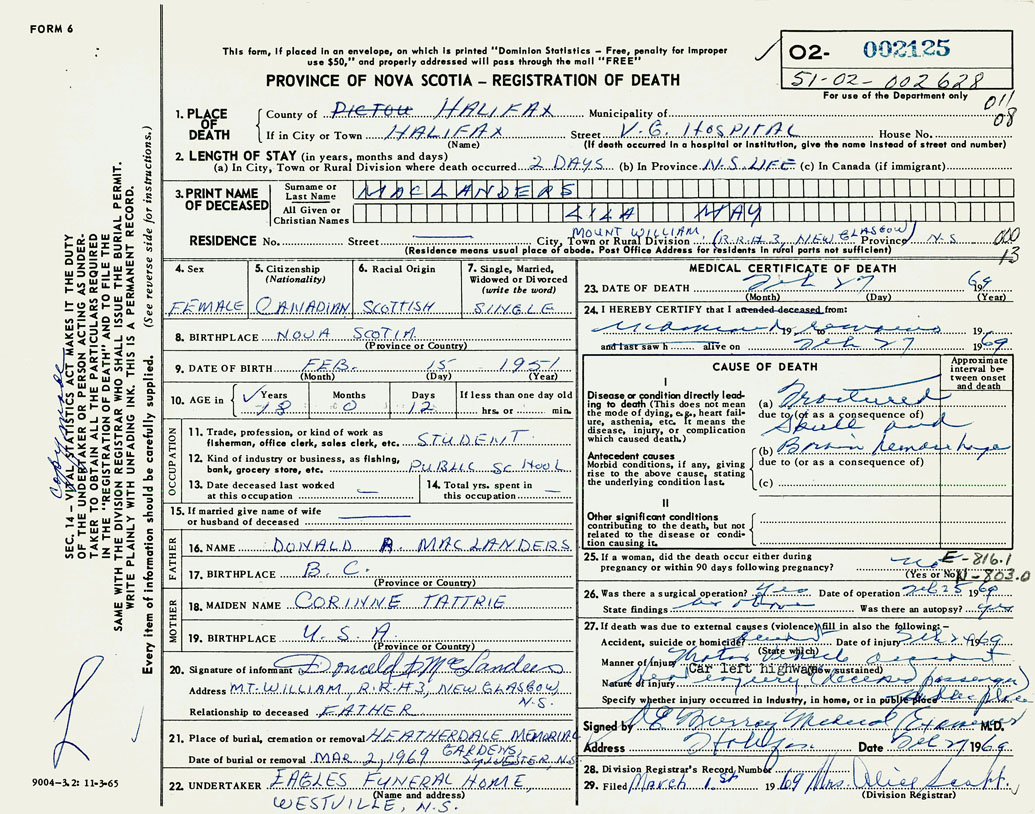 FORM 6
This form, if placed in an envelope, on which is printed "Dominion Statistics – Free, penalty for improper
use $50," and properly addressed will pass through the mail "FREE"
PROVINCE OF NOVA SCOTIA – REGISTRATION OF DEATH
O2- 002125
51-02-002628
For use of the Department only
011
08
1. PLACE OF DEATH
County of PICTOU HALIFAX Municipality of
If in City or Town HALIFAX Street V.G. HOSPITAL House No.
(Name) (If death occurred in a hospital or institution, give the name instead of street and number)
2. LENGTH OF STAY (in years, months and days)
(a) In City, Town or Rural Division where death occurred 2 DAYS (b) In Province N.S. LIFE (c) In Canada (if immigrant)
3. PRINT NAME OF DECEASED
Surname or Last Name MACLANDERS
All Given or Christian Names LILA MAY
RESIDENCE No. Street City, Town or Rural Division MOUNT WILLIAM, (R.R.#3, NEW GLASGOW) Province N.S
(Residence means usual place of abode. Post Office Address for residents in rural parts not sufficient)
13
4. Sex
FEMALE
5. Citizenship (Nationality)
CANADIAN
6. Racial Origin
SCOTTISH
7. Single, Married, Widowed or Divorced (write the word)
SINGLE
8. BIRTHPLACE NOVA SCOTIA
(Province or Country)
9. DATE OF BIRTH FEB. 15 1951
(Month) (Day) (Year)
10. AGE in Years Months Days If less than one day old
18 0 12 hrs. or min.
OCCUPATION
11. Trade, profession, or kind of work as
fisherman, office clerk, sales clerk, etc. STUDENT
12. Kind of industry or business, as fishing,
bank, grocery store, etc. PUBLIC SCHOOL
13. Date deceased last worked
at this occupation
14. Total yrs. spent in
this occupation
15. If married give name of wife
or husband of deceased
FATHER
16. NAME DONALD A. MACLANDERS
17. BIRTHPLACE B.C.
(Province or Country)
MOTHER
18. MAIDEN NAME CORINNE TATTRIE
19. BIRTHPLACE U.S.A.
(Province or Country)
20. Signature of informant
Address MT. WILLIAM, R.R.#3, NEW GLASGOW
N.S.
Relationship to deceased FATHER
21. Place of burial, cremation or removal HEATHERDALE MEMORIAL
GARDENS, SYLVESTER, N.S.
Date of burial or removal MAR 2, 1969
22. UNDERTAKER EAGLES FUNERAL HOME,
(Name and address)
WESTVILLE, N.S.
MEDICAL CERTIFICATE OF DEATH
23. DATE OF DEATH Feb 27 1969
(Month) (Day) (Year)
24. I HEREBY CERTIFY that I attended deceased from:
19 to 19
and last saw h alive on Feb 27 1969
CAUSE OF DEATH
Approximate interval between onset and death
I
Disease or condition directly leading to death (This does not mean
the mode of dying, e.g., heart failure, asthenia, etc. It means the
disease, injury, or complication
which caused death.)
(a) Fractured
due to (or as a consequence of)
Skull and
(b) Brain hemorrhage
due to (or as a consequence of)
(c)
Antecedent causes
Morbid conditions, if any, giving
rise to the above cause, stating
the underlying condition last.
II
Other significant conditions
contributing to the death, but not
related to the disease or condition causing it.
25. If a woman, did the death occur either during
pregnancy or within 90 days following pregnancy? no
(Yes or No)
E-816.1
N-803.0
26. Was there a surgical operation? Yes Date of operation Feb 25 1969
State findings as above Was there an autopsy? yes
27. If death was due to external causes (violence) fill in also the following:–
Accident, suicide or homicide? accident Date of injury Feb 24 1969
(State which)
Manner of injury Motor vehicle accident
Car left highway
(How sustained)
Nature of injury Head injury (deceased passenger)
Specify whether injury occurred in industry, in home, or in public place public place
Signed by Murray Medical Examiner M.D.
Address Halifax Date Feb 27 1969
28. Division Registrar's Record Number
29. Filed March 1st 1969 Mrs. Alice Scott
(Division Registrar)
SEC. 14 – VITAL STATISTICS ACT MAKES IT THE DUTY
OF THE UNDERTAKER OR PERSON ACTING AS UNDERTAKER TO OBTAIN ALL THE PARTICULARS REQUIRED
IN THE "REGISTRATION OF DEATH" AND TO FILE THE
SAME WITH THE DIVISION REGISTRAR WHO SHALL ISSUE THE BURIAL PERMIT.
WRITE PLAINLY WITH UNFADING INK. THIS IS A PERMANENT RECORD.
Every item of information should be carefully supplied. (See reverse side for instructions.)
copy made
9004-3.2: 11-3-65